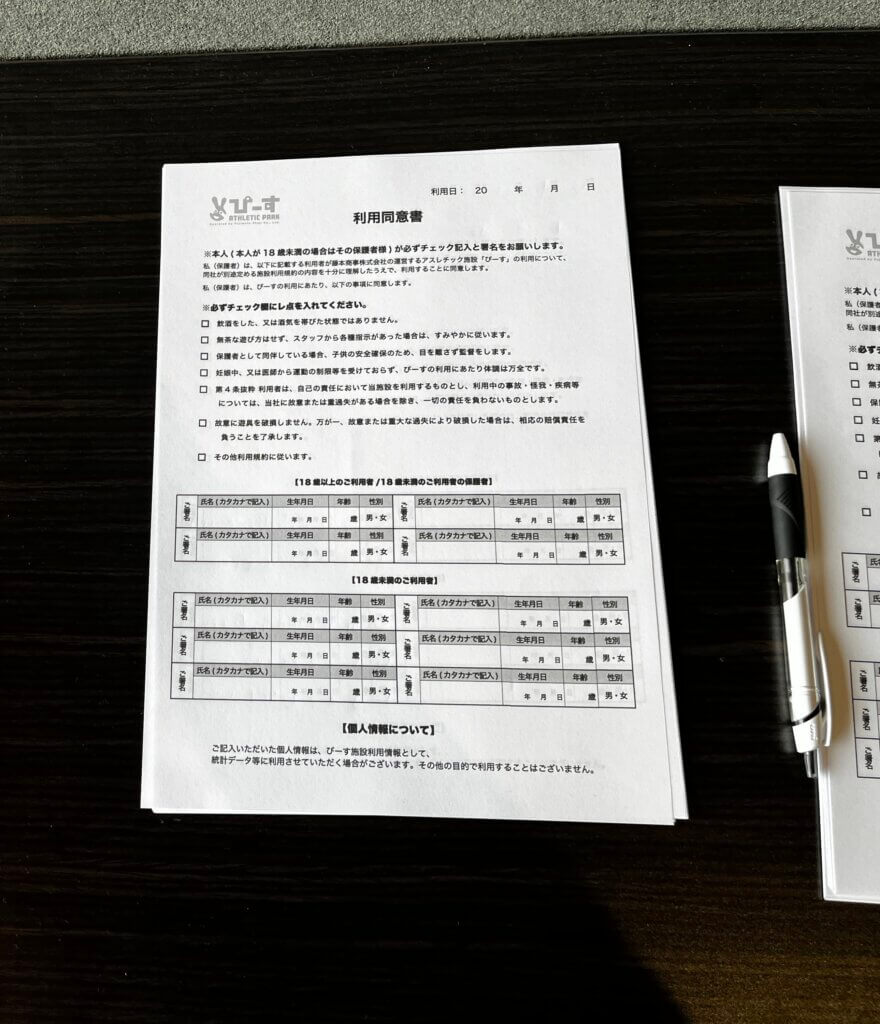 利用日： 20 年 月 日
ぴーす
ATHLETIC PARK
利用同意書
※本人 ( 本人が 18 歳未満の場合はその保護者様 ) が必ずチェック記入と署名をお願いします。
私（保護者）は、以下に記載する利用者が藤本商事株式会社の運営するアスレチック施設「ぴーす」の利用について、
同社が別途定める施設利用規約の内容を十分に理解したうえで、利用することに同意します。
私（保護者）は、ぴーすの利用にあたり、以下の事項に同意します。
※必ずチェック欄にレ点を入れてください。
□ 飲酒をした、又は酒気を帯びた状態ではありません。
□ 無茶な遊び方はせず、スタッフから各種指示があった場合は、すみやかに従います。
□ 保護者として同伴している場合、子供の安全確保のため、目を離さず監督をします。
□ 妊娠中、又は医師から運動の制限等を受けておらず、ぴーすの利用にあたり体調は万全です。
□ 第４条抜粋 利用者は、自己の責任において当施設を利用するものとし、利用中の事故・怪我・疾病等
については、当社に故意または重過失がある場合を除き、一切の責任を負わないものとします。
□ 故意に遊具を破損しません。万が一、故意または重大な過失により破損した場合は、相応の賠償責任を
負うことを了承します。
□ その他利用規約に従います。
【18 歳以上のご利用者 /18 歳未満のご利用者の保護者】
ご署名 氏名 ( カタカナで記入 ) 生年月日 年齢 性別 ご署名 氏名 ( カタカナで記入 ) 生年月日 年齢 性別
年 月 日 歳 男・女 年 月 日 歳 男・女
ご署名 氏名 ( カタカナで記入 ) 生年月日 年齢 性別 ご署名 氏名 ( カタカナで記入 ) 生年月日 年齢 性別
年 月 日 歳 男・女 年 月 日 歳 男・女
【18 歳未満のご利用者】
ご署名 氏名 ( カタカナで記入 ) 生年月日 年齢 性別 ご署名 氏名 ( カタカナで記入 ) 生年月日 年齢 性別
年 月 日 歳 男・女 年 月 日 歳 男・女
ご署名 氏名 ( カタカナで記入 ) 生年月日 年齢 性別 ご署名 氏名 ( カタカナで記入 ) 生年月日 年齢 性別
年 月 日 歳 男・女 年 月 日 歳 男・女
ご署名 氏名 ( カタカナで記入 ) 生年月日 年齢 性別 ご署名 氏名 ( カタカナで記入 ) 生年月日 年齢 性別
年 月 日 歳 男・女 年 月 日 歳 男・女
【個人情報について】
ご記入いただいた個人情報は、ぴーす施設利用情報として、
統計データ等に利用させていただく場合がございます。その他の目的で利用することはございません。
ぴ
ATH
※本人 (
私（保護者
同社が別途
私（保護
※必ずチ
□ 飲酒
□ 無茶
□ 保
□ 妊
□ 第
ご署名 氏名
ご署名 氏
ご署名
ご署名
ご署名